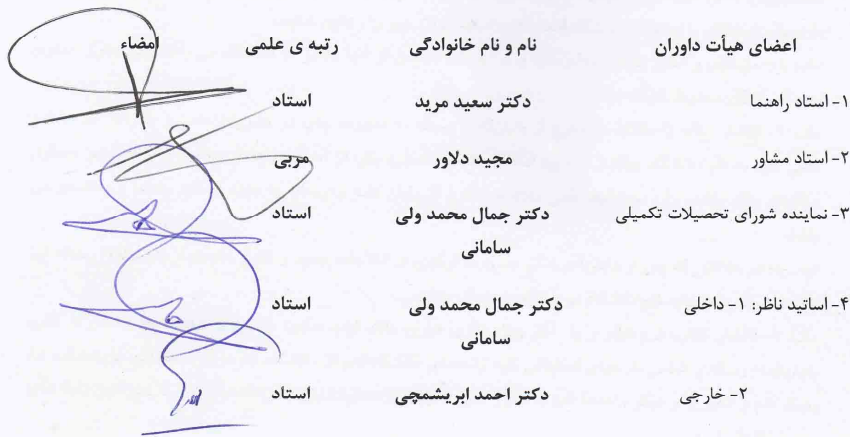 اعضای هیأت داوران نام و نام خانوادگی رتبه ی علمی امضاء
۱- استاد راهنما دکتر سعید مرید استاد
۲- استاد مشاور مجید دلاور مربی
۳- نماینده شورای تحصیلات تکمیلی دکتر جمال محمد ولی استاد
سامانی
۴- اساتید ناظر: ۱- داخلی دکتر جمال محمد ولی استاد
سامانی
۲- خارجی دکتر احمد ابریشمچی استاد